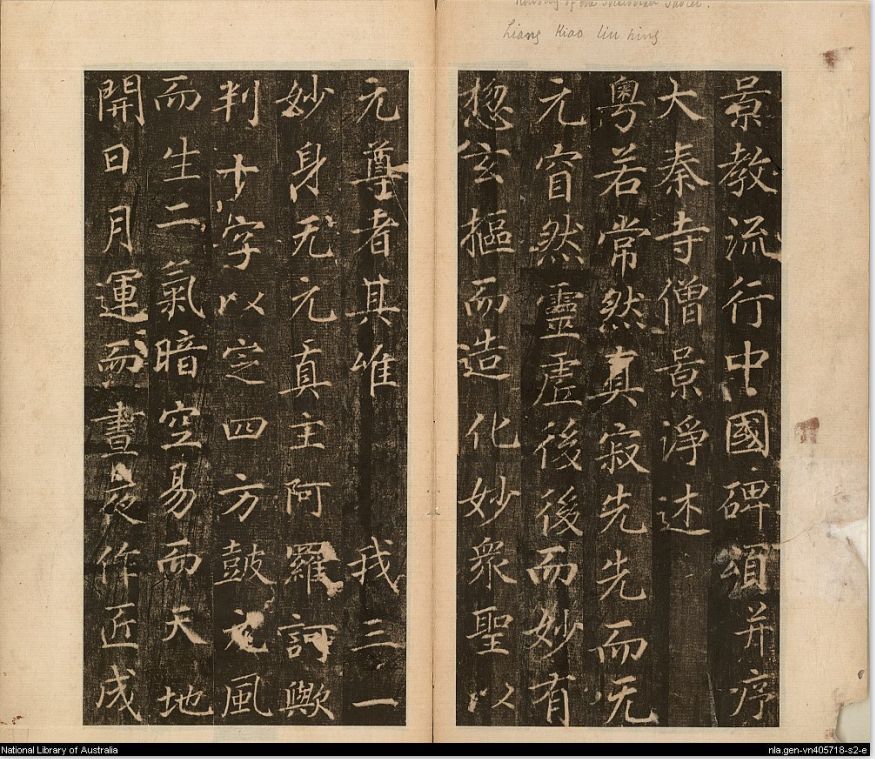 of the Nestorian Tablet.
Liang Kiao liu hing
景教流行中國碑頌并序
大秦寺僧景淨述
粵若常然真寂先先而无
元窅然靈虛後後而妙有
惣玄摳而造化妙衆聖以
元尊者其唯 我三一
妙身无元真主阿羅訶歟
判十字以定四方鼓元風
而生二氣暗空易而天地
開日月運而晝夜作匠成
National Library of Australia
nla.gen-vn405718-s2-e